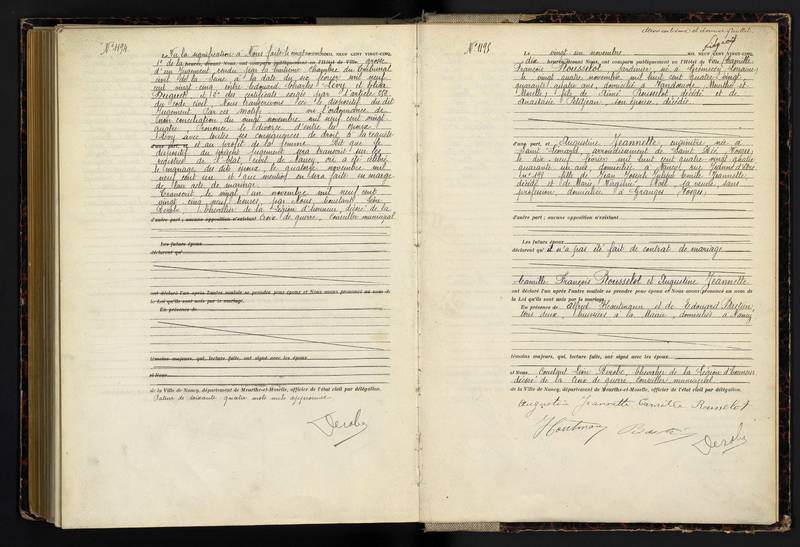 N° 1194
Vu la signification à Nous faite le vingt MIL NEUF CENT VINGT-CINQ,
1° de la heures, devant Nous, ont comparu publiquement en l'Hôtel de Ville grosse
d'un Jugement rendu par la huitième Chambre du Tribunal
civil de la Seine à la date du six février mil neuf
cent vingt cinq entre Edouard Charles Levy et
et 2° des certificats exigés par l'article 252
du Code civil, Nous transcrivons ici le dispositif du dit
Jugement. Par ces motifs vu l'ordonnance de
non conciliation du vingt novembre mil neuf cent vingt
quatre, Prononce le divorce d'entre les époux
Levy avec toutes ses conséquences de droit à la requête
d'une part, et et au profit de la femme. Dit que le
dispositif du présent jugement sera transcrit sur les
registres de l'état civil de Nancy, où a été célébré
le mariage des dits époux, le quatorze novembre mil
neuf cent et que mention en sera faite en marge
de leur acte de mariage.
Transcrit le vingt un novembre mil neuf cent
vingt cinq neuf heures, par Nous, Constant Léon
Derobe, Chevalier de la Légion d'honneur, décoré de la
d'autre part ; aucune opposition n'existant Croix de guerre, Conseiller municipal
Les futurs époux
déclarent qu'
ont déclaré l'un après l'autre vouloir se prendre pour époux et Nous avons prononcé au nom de
la Loi qu'ils sont unis par le mariage.
En présence de
témoins majeurs, qui, lecture faite, ont signé avec les époux
et Nous
de la Ville de Nancy, département de Meurthe-et-Moselle, officier de l'état civil par délégation.
Rature de soixante quatre mots nuls approuvée
Derobe
N° 1195
Le vingt un novembre MIL NEUF CENT VINGT-CINQ,
dix heures, devant Nous, ont comparu publiquement en l'Hôtel de Ville Camille
François Rousselot, jardinier, né à
le vingt quatre novembre mil huit cent quatre vingt
quarante quatre ans, domicilié à Vandoeuvre Meurthe et
Moselle, fils de Rousselot décédé et de
Anastasie Petitjean son épouse, décédée.
d'une part, et Augustine Jeannette, née à
Saint arrondissement de Saint Dié, Vosges,
le dix neuf février mil huit cent quatre vingt quatre
quarante un ans, domiciliée à Nancy, rue Jeanne d'Arc
N° 191 fille de Jean Joseph Emile Jeannette,
décédé et de Marie sa veuve sans
profession, domiciliée à Granges, Vosges,
d'autre part ; aucune opposition n'existant
Les futurs époux
déclarent qu'il n'a pas été fait de contrat de mariage
Camille François Rousselot et Augustine Jeannette
ont déclaré l'un après l'autre vouloir se prendre pour époux et Nous avons prononcé au nom de
la Loi qu'ils sont unis par le mariage.
En présence de Alfred et de Edouard
tous deux huissiers à la Mairie, domiciliés à Nancy
témoins majeurs, qui, lecture faite, ont signé avec les époux
et Nous Constant Léon Derobe, Chevalier de la Légion d'honneur
décoré de la Croix de guerre, Conseiller municipal
de la Ville de Nancy, département de Meurthe-et-Moselle, officier de l'état civil par délégation.
Augustine Jeannette Camille Rousselot
Derobe